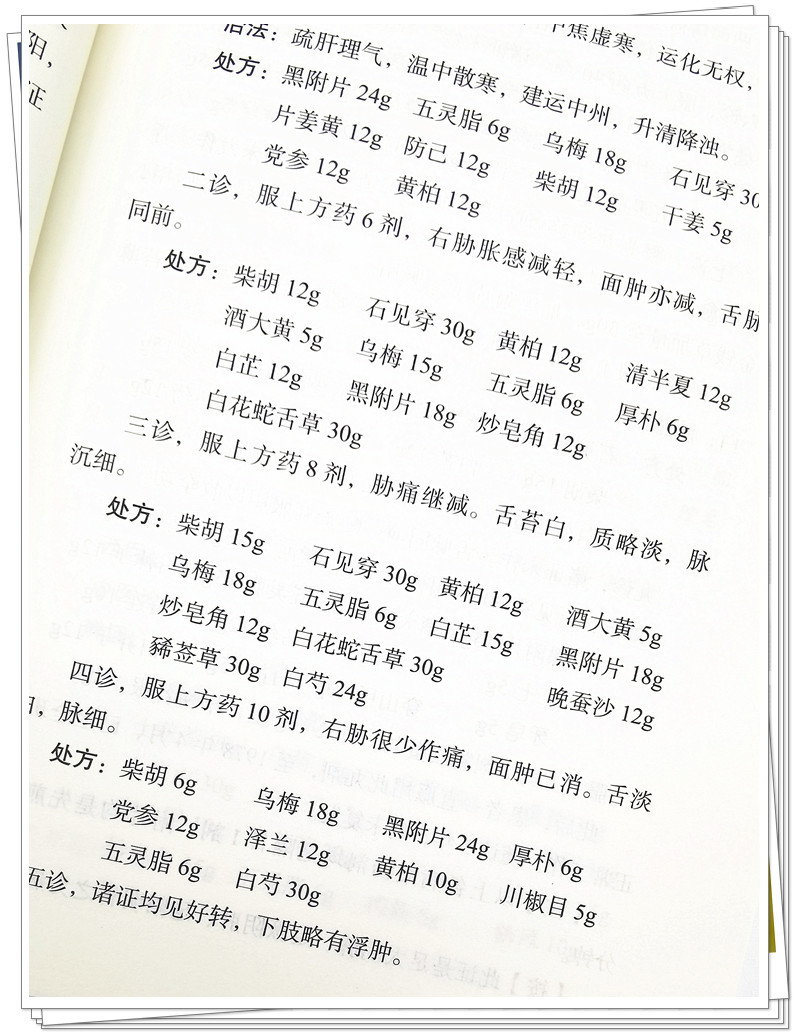 阳，
证
中焦虚寒，运化无权，
治法：疏肝理气，温中散寒，建运中州，升清降浊。
处方：黑附片 24g 五灵脂 6g 乌梅 18g 石见穿 30
片姜黄 12g 防己 12g 柴胡 12g 干姜 5g
党参 12g 黄柏 12g
二诊，服上方药 6 剂，右胁胀感减轻，面肿亦减，舌脉
同前。
处方：柴胡 12g 石见穿 30g 黄柏 12g 清半夏 12g
酒大黄 5g 乌梅 15g 五灵脂 6g 厚朴 6g
白芷 12g 黑附片 18g 炒皂角 12g
白花蛇舌草 30g
三诊，服上方药 8 剂，胁痛继减。舌苔白，质略淡，脉
沉细。
处方：柴胡 15g 石见穿 30g 黄柏 12g 酒大黄 5g
乌梅 18g 五灵脂 6g 白芷 15g 黑附片 18g
炒皂角 12g 白花蛇舌草 30g 晚蚕沙 12g
豨莶草 30g 白芍 24g
四诊，服上方药 10 剂，右胁很少作痛，面肿已消。舌淡
，脉细。
处方：柴胡 6g 乌梅 18g 黑附片 24g 厚朴 6g
党参 12g 泽兰 12g 黄柏 10g 川椒目 5g
五灵脂 6g 白芍 30g
五诊，诸证均见好转，下肢略有浮肿。